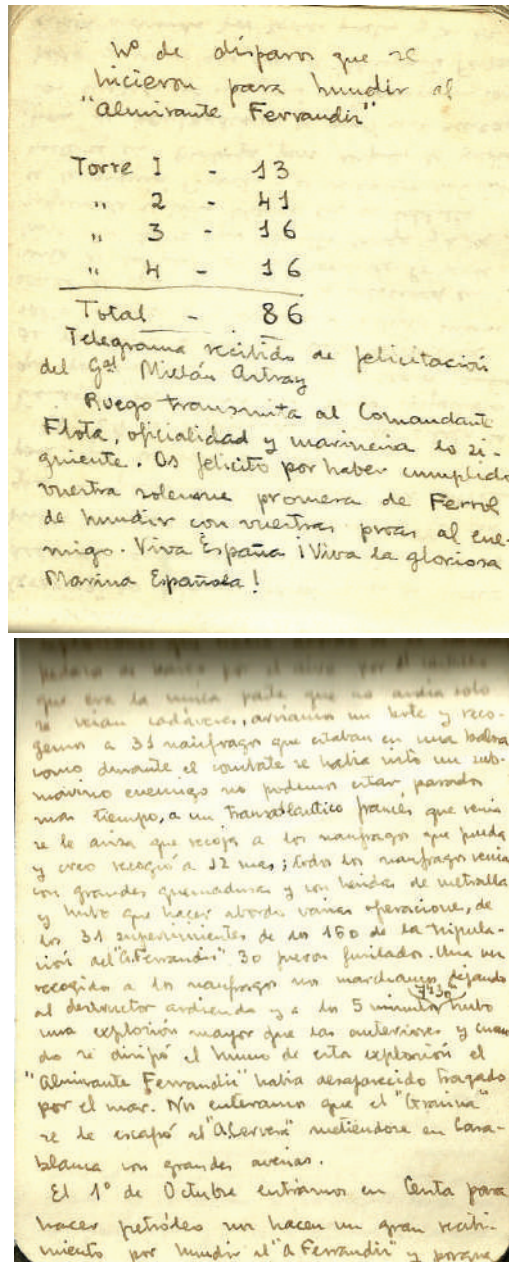 Nº de disparos que se
hicieron para hundir al
"Almirante Ferrandiz"
Torre I - 13
" 2 - 41
" 3 - 16
" 4 - 16
Total - 86
Telegrama recibido de felicitación
del Gral Millán Astray
Ruego transmita al Comandante
Flota, oficialidad y marineria lo si-
guiente. Os felicito por haber cumplido
vuestra solemne promesa de Ferrol
de hundir con vuestras proas al ene-
migo. Viva España ¡Viva la gloriosa
Marina Española!
pedazos de barco por el aire por el
que era la unica parte que no ardia solo
se veian cadáveres, arriamos un bote y reco-
gemos a 31 naúfragos que estaban en una balsa
como durante el combate se habia visto un sub-
marino enemigo no podemos estar parados
mas tiempo, a un transatlantico francés que venia
se le avisa que recoja a los naufragos que pueda
y creo recogió a 12 mas; todos los naufragos venian
con grandes quemaduras y con heridas de metralla
y hubo que hacer abordo varias operaciones, de
los 31 supervivientes de los 160 de la tripula-
ción del "A. Ferrandiz" 30 fueron fusilados. Una vez
recogidos a los naufragos nos marchamos dejando
al destructor ardiendo y a los 5 minutos hubo
una explosión mayor que las anteriores y cuan-
do se disipó el humo de esta explosión el
"Almirante Ferrandiz" habia desaparecido tragado
por el mar. Nos enteramos que el "Gravina"
se le escapó al "A. Cervera" metiendose en Casa-
blanca con grandes averias.
El 1º de Octubre entramos en Ceuta para
hacer petróleo nos hacen un gran recibi-
miento por hundir al "A Ferrandiz" y porque